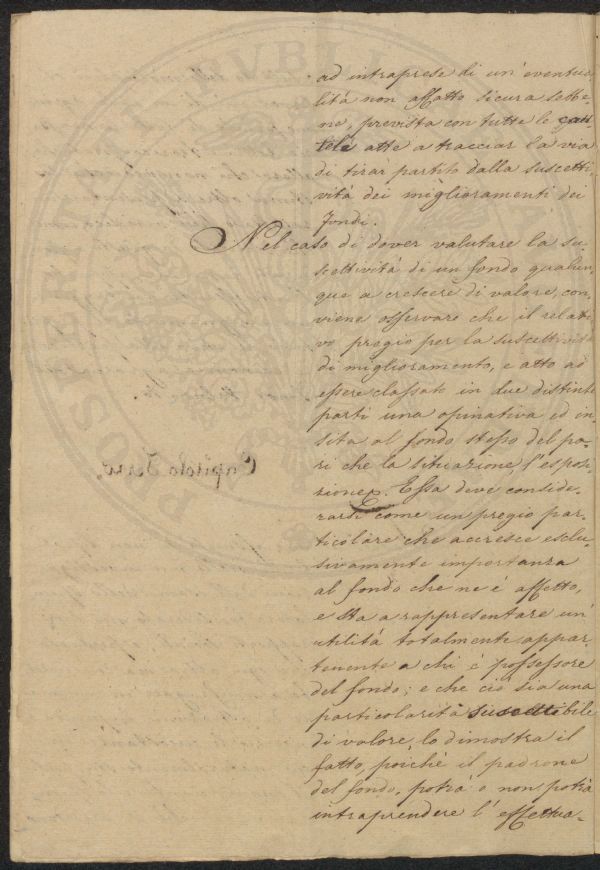 ad intraprese di un' eventua-
lità non affatto sicura sebbe-
ne, prevista con tutte le cau-
tele atte a tracciar la via
di tirar partito dalla suscetti-
vità dei miglioramenti dei
fondi.
Nel caso di dover valutare la su-
scettività di un fondo qualun-
que a crescere di valore, con-
viene osservare che il relati-
vo pregio per la suscettività
di miglioramento, è atto ad
essere classato in due distinte
parti una opinativa ed in-
sita al fondo stesso del pa-
ri che la situazione l'esposi-
zione. Essa devi conside-
rarsi come un pregio par-
ticolare che accresce esclu-
sivamente importanza
al fondo che ne è affetto,
e sta a rappresentare un'
utilità totalmente appar-
tenente a chi è possessore
del fondo; e che ciò sia una
particolarità suscettibile
di valore, lo dimostra il
fatto, poichè il padrone
del fondo, potrà o non potrà
intraprendere l' effettua-
Capitolo Terzo